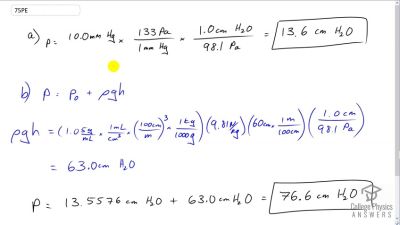 75PE
a) P = 10.0 mm Hg × 133 Pa / 1 mm Hg × 1.0 cm H₂O / 98.1 Pa = 13.6 cm H₂O
b) P = P₀ + ρgh
ρgh = (1.05 g/mL × 1 mL/cm³ × (100 cm/m)³ × 1 kg/1000 g)(9.81 N/kg)(60 cm × 1 m/100 cm)(1.0 cm/98.1 Pa)
= 63.0 cm H₂O
P = 13.5576 cm H₂O + 63.0 cm H₂O = 76.6 cm H₂O
College Physics
ANSWERS